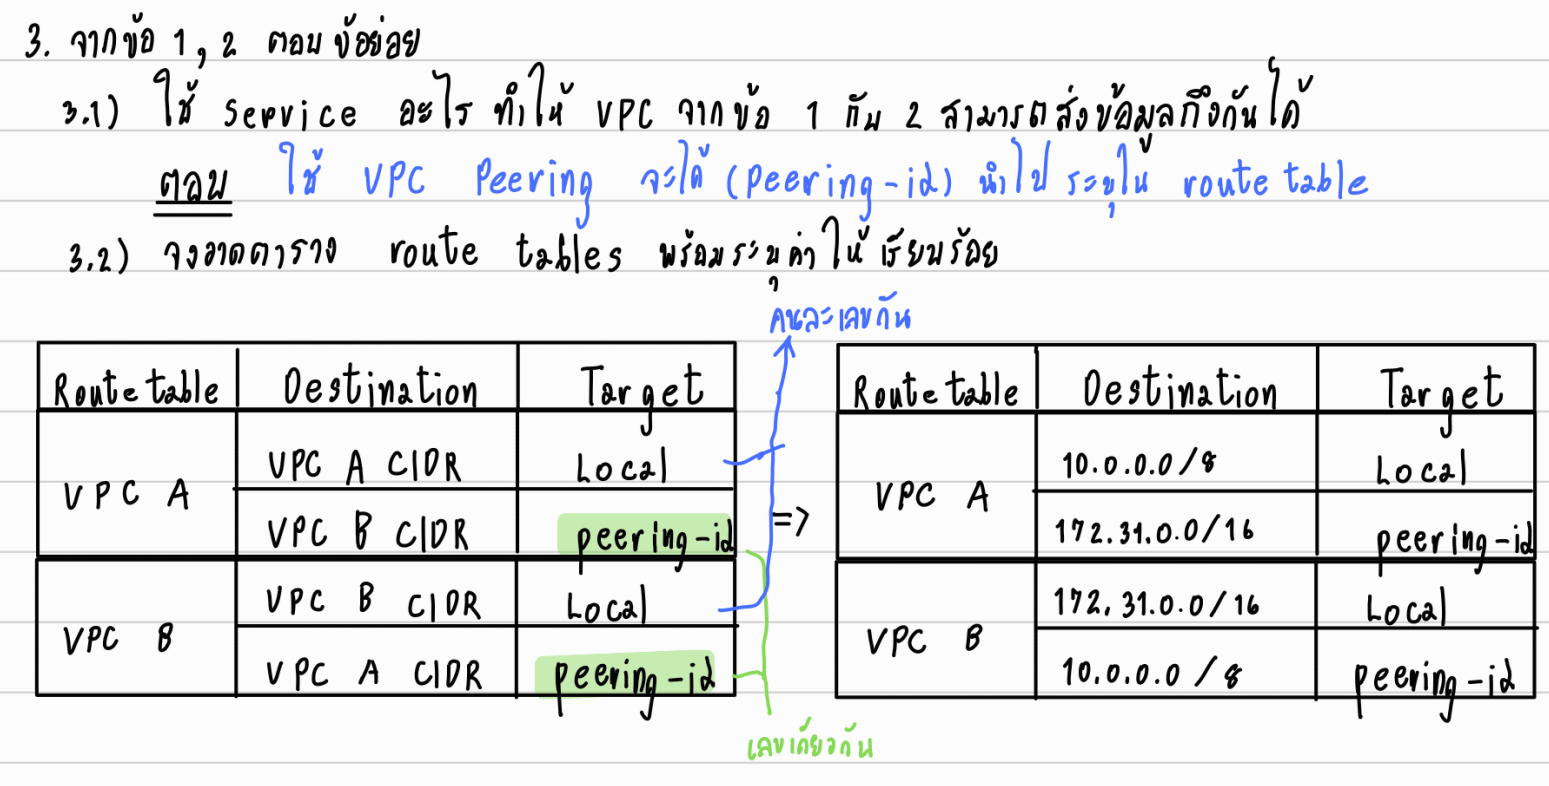 3. จากข้อ 1, 2 ตอบข้อย่อย
3.1) ใช้ Service อะไร ทำให้ VPC จากข้อ 1 กับ 2 สามารถส่งข้อมูลถึงกันได้
ตอบ ใช้ VPC Peering จะได้ (peering-id) นำไประบุใน route table
3.2) จงวาดตาราง route tables พร้อมระบุค่าให้เรียบร้อย
คนละเลขกัน
Route table Destination Target
VPC A VPC A CIDR Local
VPC B CIDR peering-id
VPC B VPC B CIDR Local
VPC A CIDR peering-id
=>
Route table Destination Target
VPC A 10.0.0.0/8 Local
172.31.0.0/16 peering-id
VPC B 172.31.0.0/16 Local
10.0.0.0/8 peering-id
เลขเดียวกัน